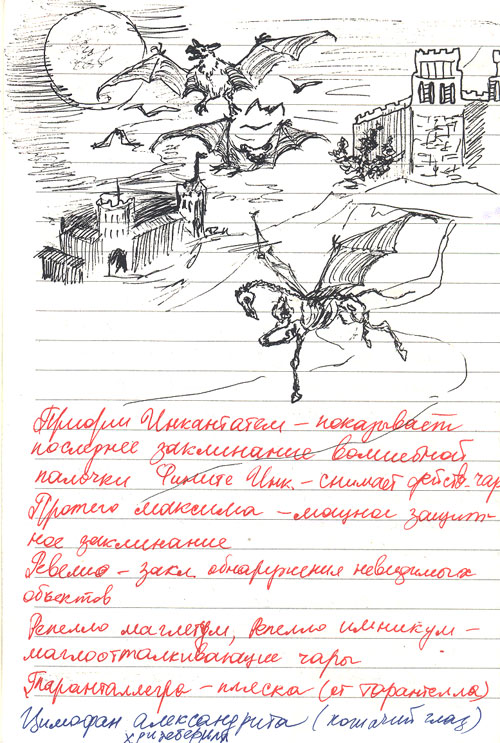 Приори Инкантатем – показывает
последнее заклинание волшебной
палочки Фините Инк. – снимает действ. чар
Протего максима – мощное защит-
ное заклинание
Ревелио – закл. обнаружения невидимых
объектов
Репелло маглетум, Репелло имникум –
маглоотталкивающие чары
Таранталлегра – пляска (от тарантелла)
Цимофан александрита (кошачий глаз)
хризоберилл